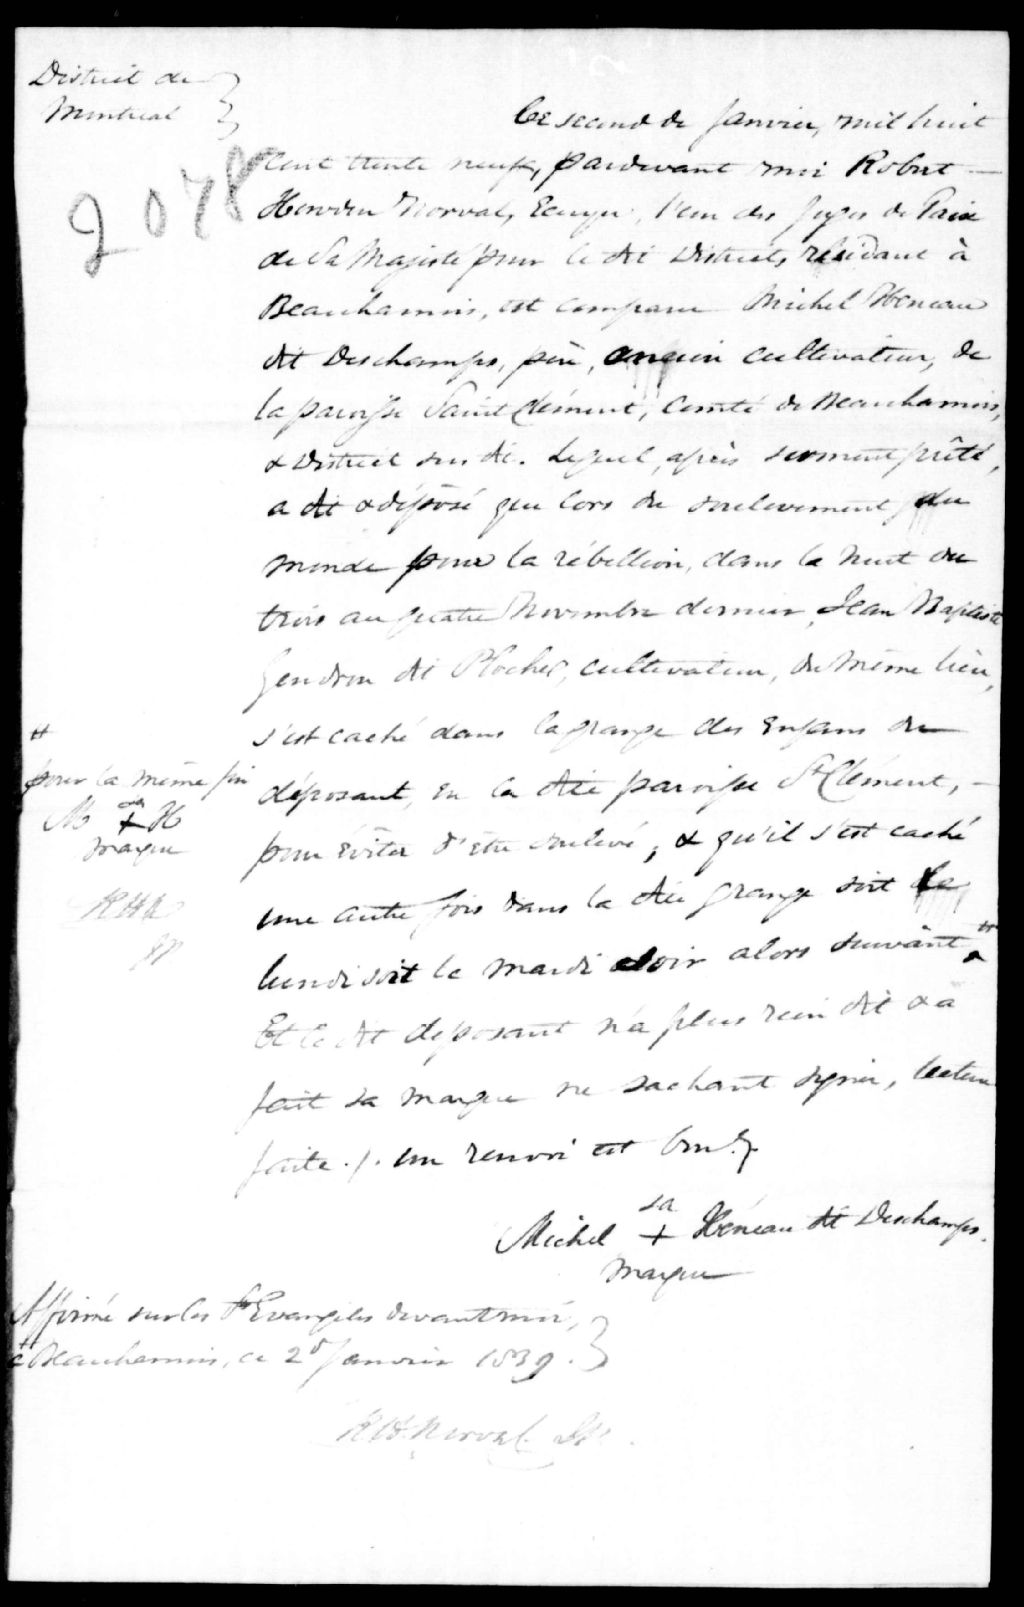 District de
Montréal
2078
Ce second de Janvier, mil huit
cent trente neuf, pardevant moi Robert
Howden Norval, Ecuyer, l'un des Juges de Paix
de Sa Majesté pour le dit District, résidant à
Beauharnois, est comparu Michel Héneau
dit Deschamps, père, ancien cultivateur, de
la paroisse Saint Clément, Comté de Beauharnois,
& District sus dit. Lequel, après serment prêté,
a dit & déposé que lors du soulevement du
monde pour la rébellion, dans la nuit du
trois au quatre Novembre dernier, Jean Baptiste
Gendron dit Rocher, cultivateur, du même lieu,
s'est caché dans la grange des Enfans du
déposant, en la dite paroisse St Clément,
pour éviter d'être soulevé, & qu'il s'est caché
une autre fois dans la dite grange soit le
lundi soit le mardi soir alors suivant #
Et le dit déposant n'a plus rien dit & a
fait sa marque ne sachant signer, lecture
faite ./. un renvoi est bon.
#
pour la même fin
sa
M + H
marque
RHN
JP
sa
Michel + Héneau dit Deschamps.
marque
Affirmé sur les Sts Evangiles devant moi,
à Beauharnois, ce 2d Janvier 1839.
R H Norval JP.